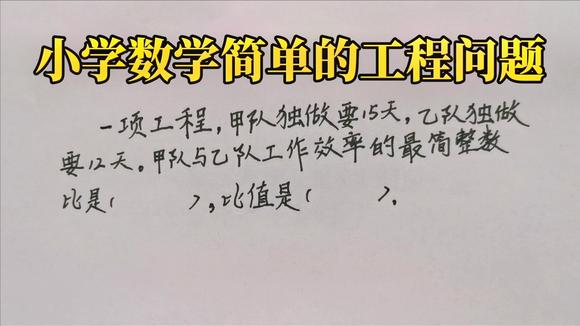 小学数学简单的工程问题
一项工程，甲队独做要15天，乙队独做
要12天。甲队与乙队工作效率的最简整数
比是（　　），比值是（　　）。